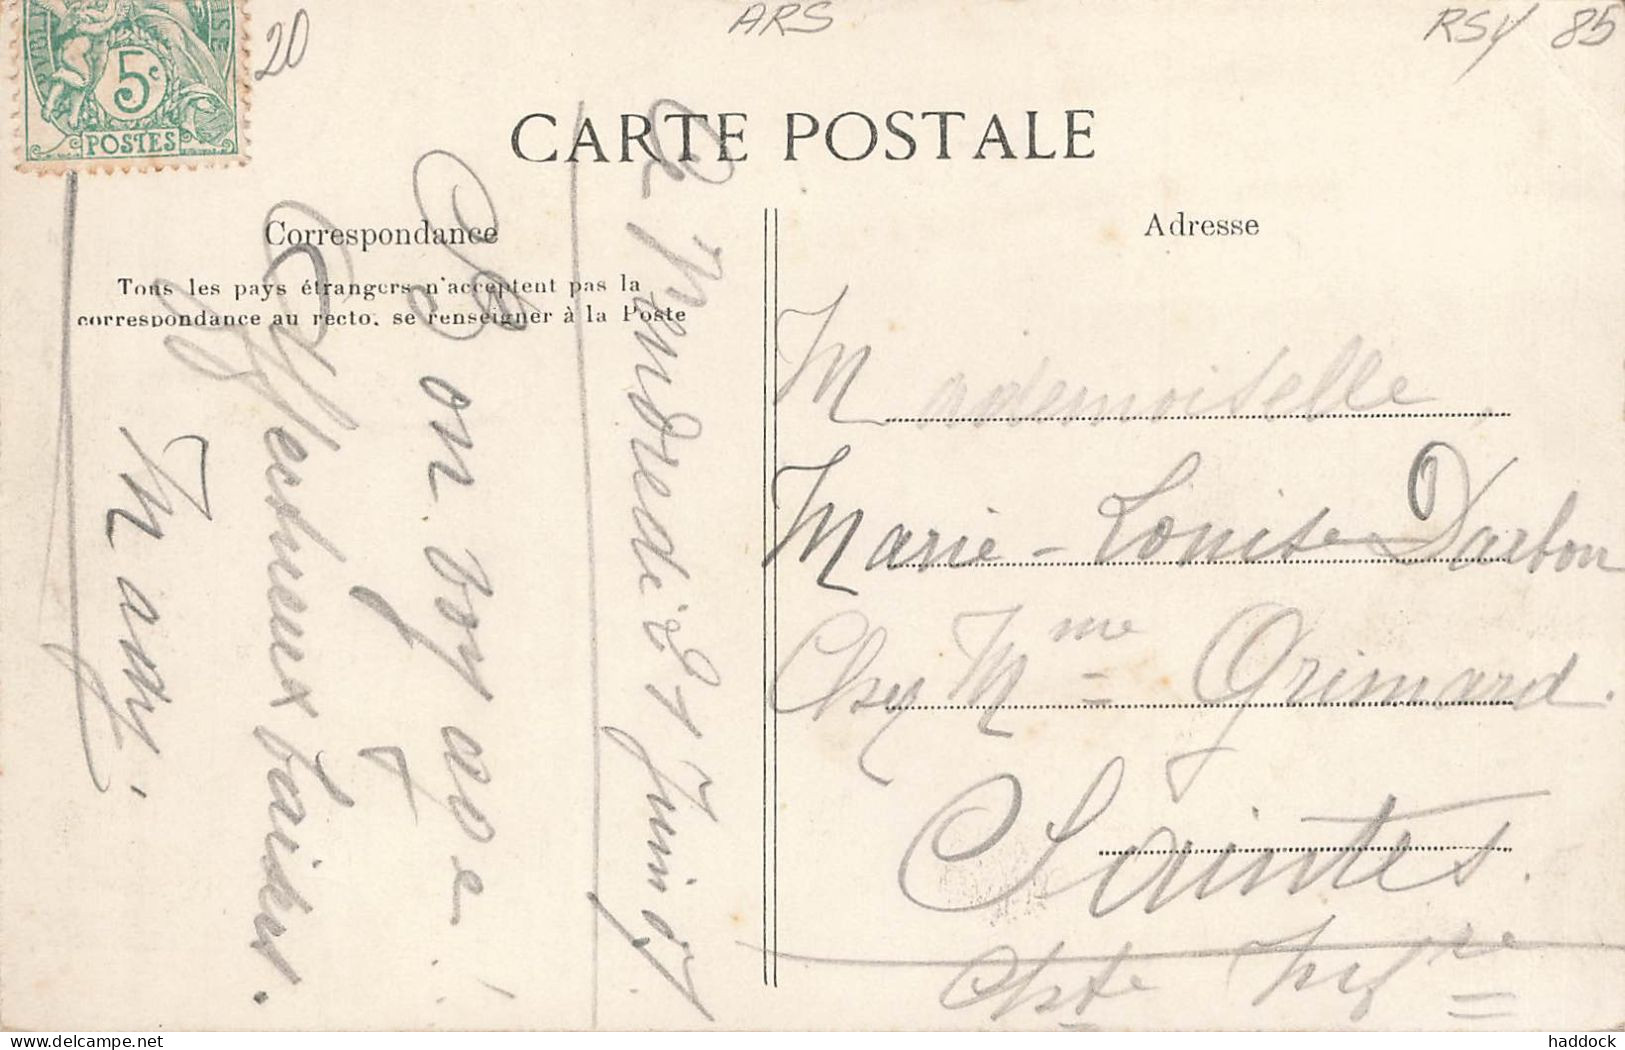 20
ARS
RSY 85
5c
POSTES
CARTE POSTALE
Correspondance
Tous les pays étrangers n'acceptent pas la
correspondance au recto, se renseigner à la Poste
Adresse
Ce Vendredi 21 Juin 07.
Bon voyage!
Affectueux baisers.
Many.
Mademoiselle
Marie-Louise Darbon
Chez Mme Grimard.
Saintes.
Chte Infre
delcampe.net
haddock